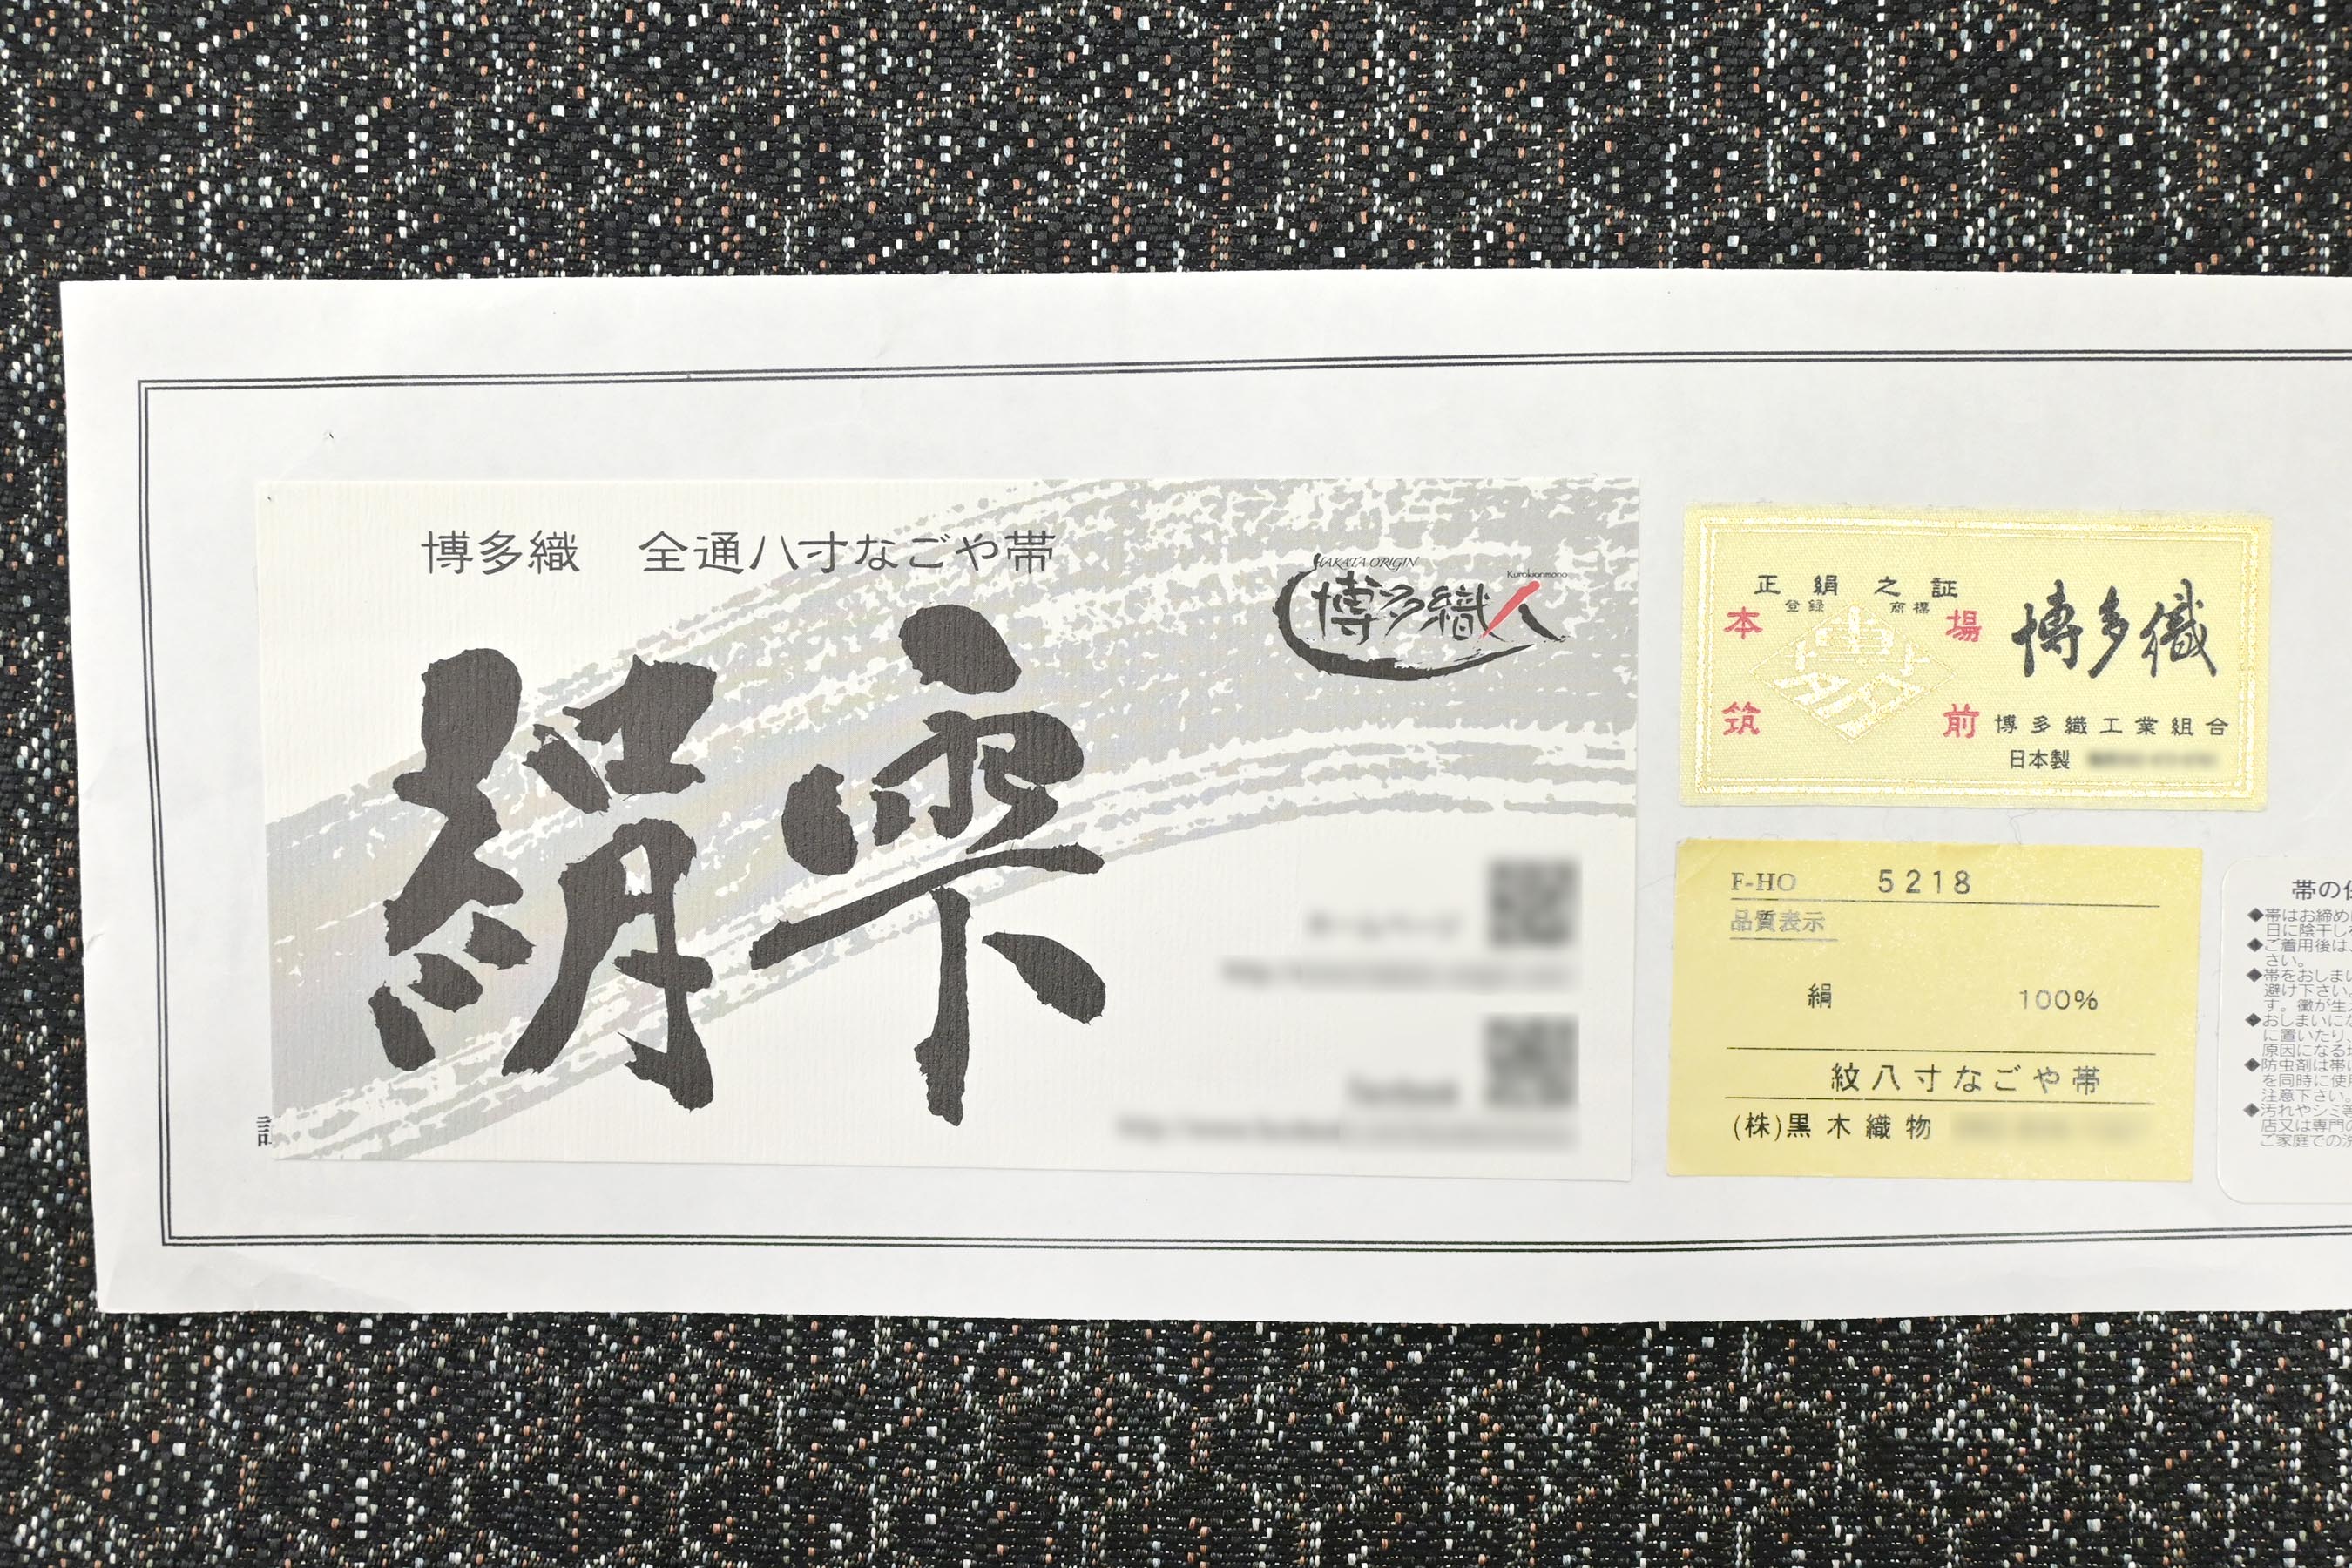 博多織　全通八寸なごや帯
絹雫
HAKATA ORIGIN
Kurokiorimono
博多織人
正絹之証
登録 商標
本場
筑前
博多織
博多織工業組合
日本製
F-HO 5218
品質表示
絹 100%
紋八寸なごや帯
(株)黒木織物
帯の
◆帯はお締め
日に陰干し
◆ご着用後は、
さい。
◆帯をおしまい
避け下さい。
す。黴が生
◆おしまいにな
に置いたり、
原因になる
◆防虫剤は帯に
を同時に使
注意下さい。
◆汚れやシミ
店又は専門の
ご家庭での